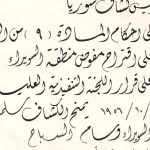 لكشاف سوريا
على احكام المادة (٩) من ال
على اقتراح مفوض منطقة السويداء
على قرار اللجنة التنفيذية العليا
١٩٥٦/١٠/ يمنح الكشاف
السويداء قسام السباح